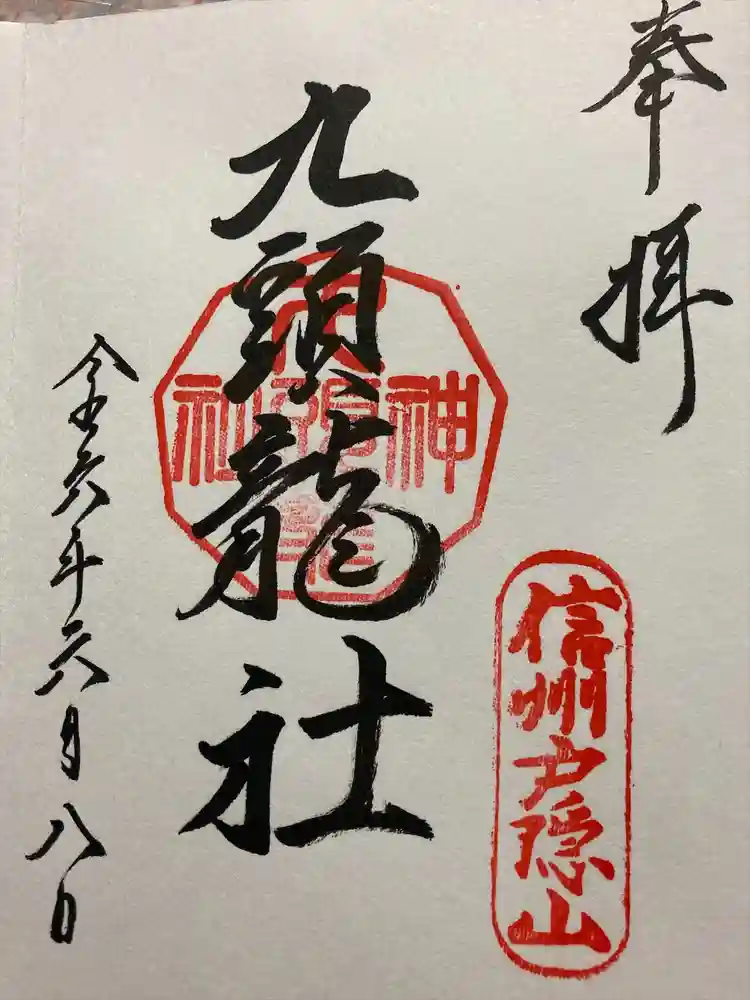 奉拝
信州戸隠山
九頭龍社
神
社
令和六年六月八日